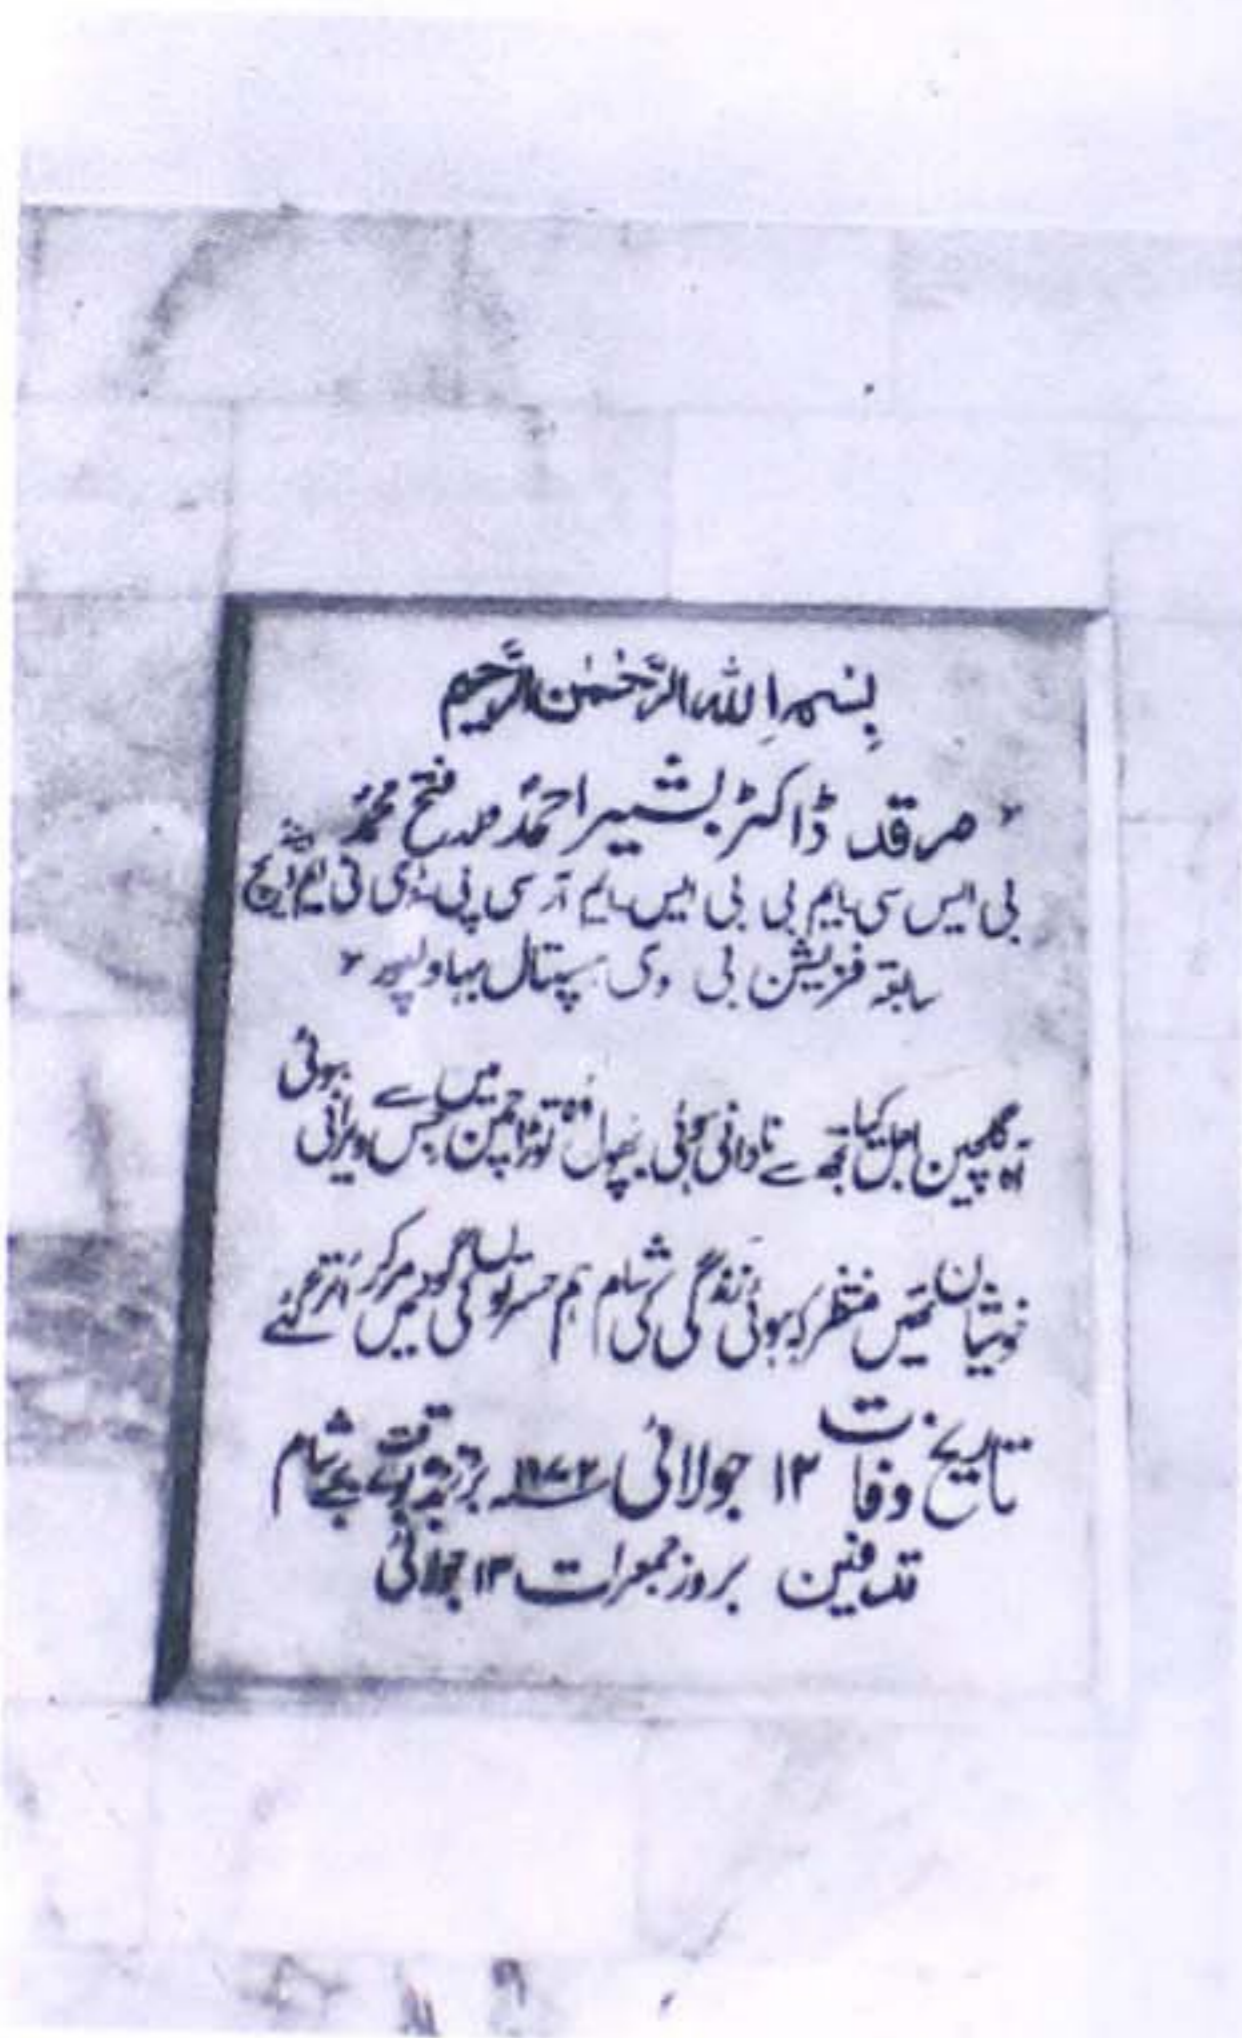 بِسْمِ اللہِ الرَّحْمٰنِ الرَّحِیْم
مرقد ڈاکٹر بشیر احمدؐ ولد فتح محمدؐ
بی ایس سی، ایم بی بی ایس، ایم آر سی پی، ڈی ٹی ایم اینڈ ایچ
سابقہ فزیشن بی وی ہسپتال بہاولپور
آہ گلچین اجل کیا تجھ سے نادانی ہوئی پھول وہ توڑا چمن میں جس سے ویرانی ہوئی
خوشیاں تھیں منتظر کہ ہوئی زندگی کی شام ہم حسرتوں کی گود میں مر کر اتر گئے
تاریخ وفات ۱۲ جولائی ۱۹۷۲ء بروز بدھ بوقت بجے شام
تدفین بروز جمعرات ۱۳ جولائی